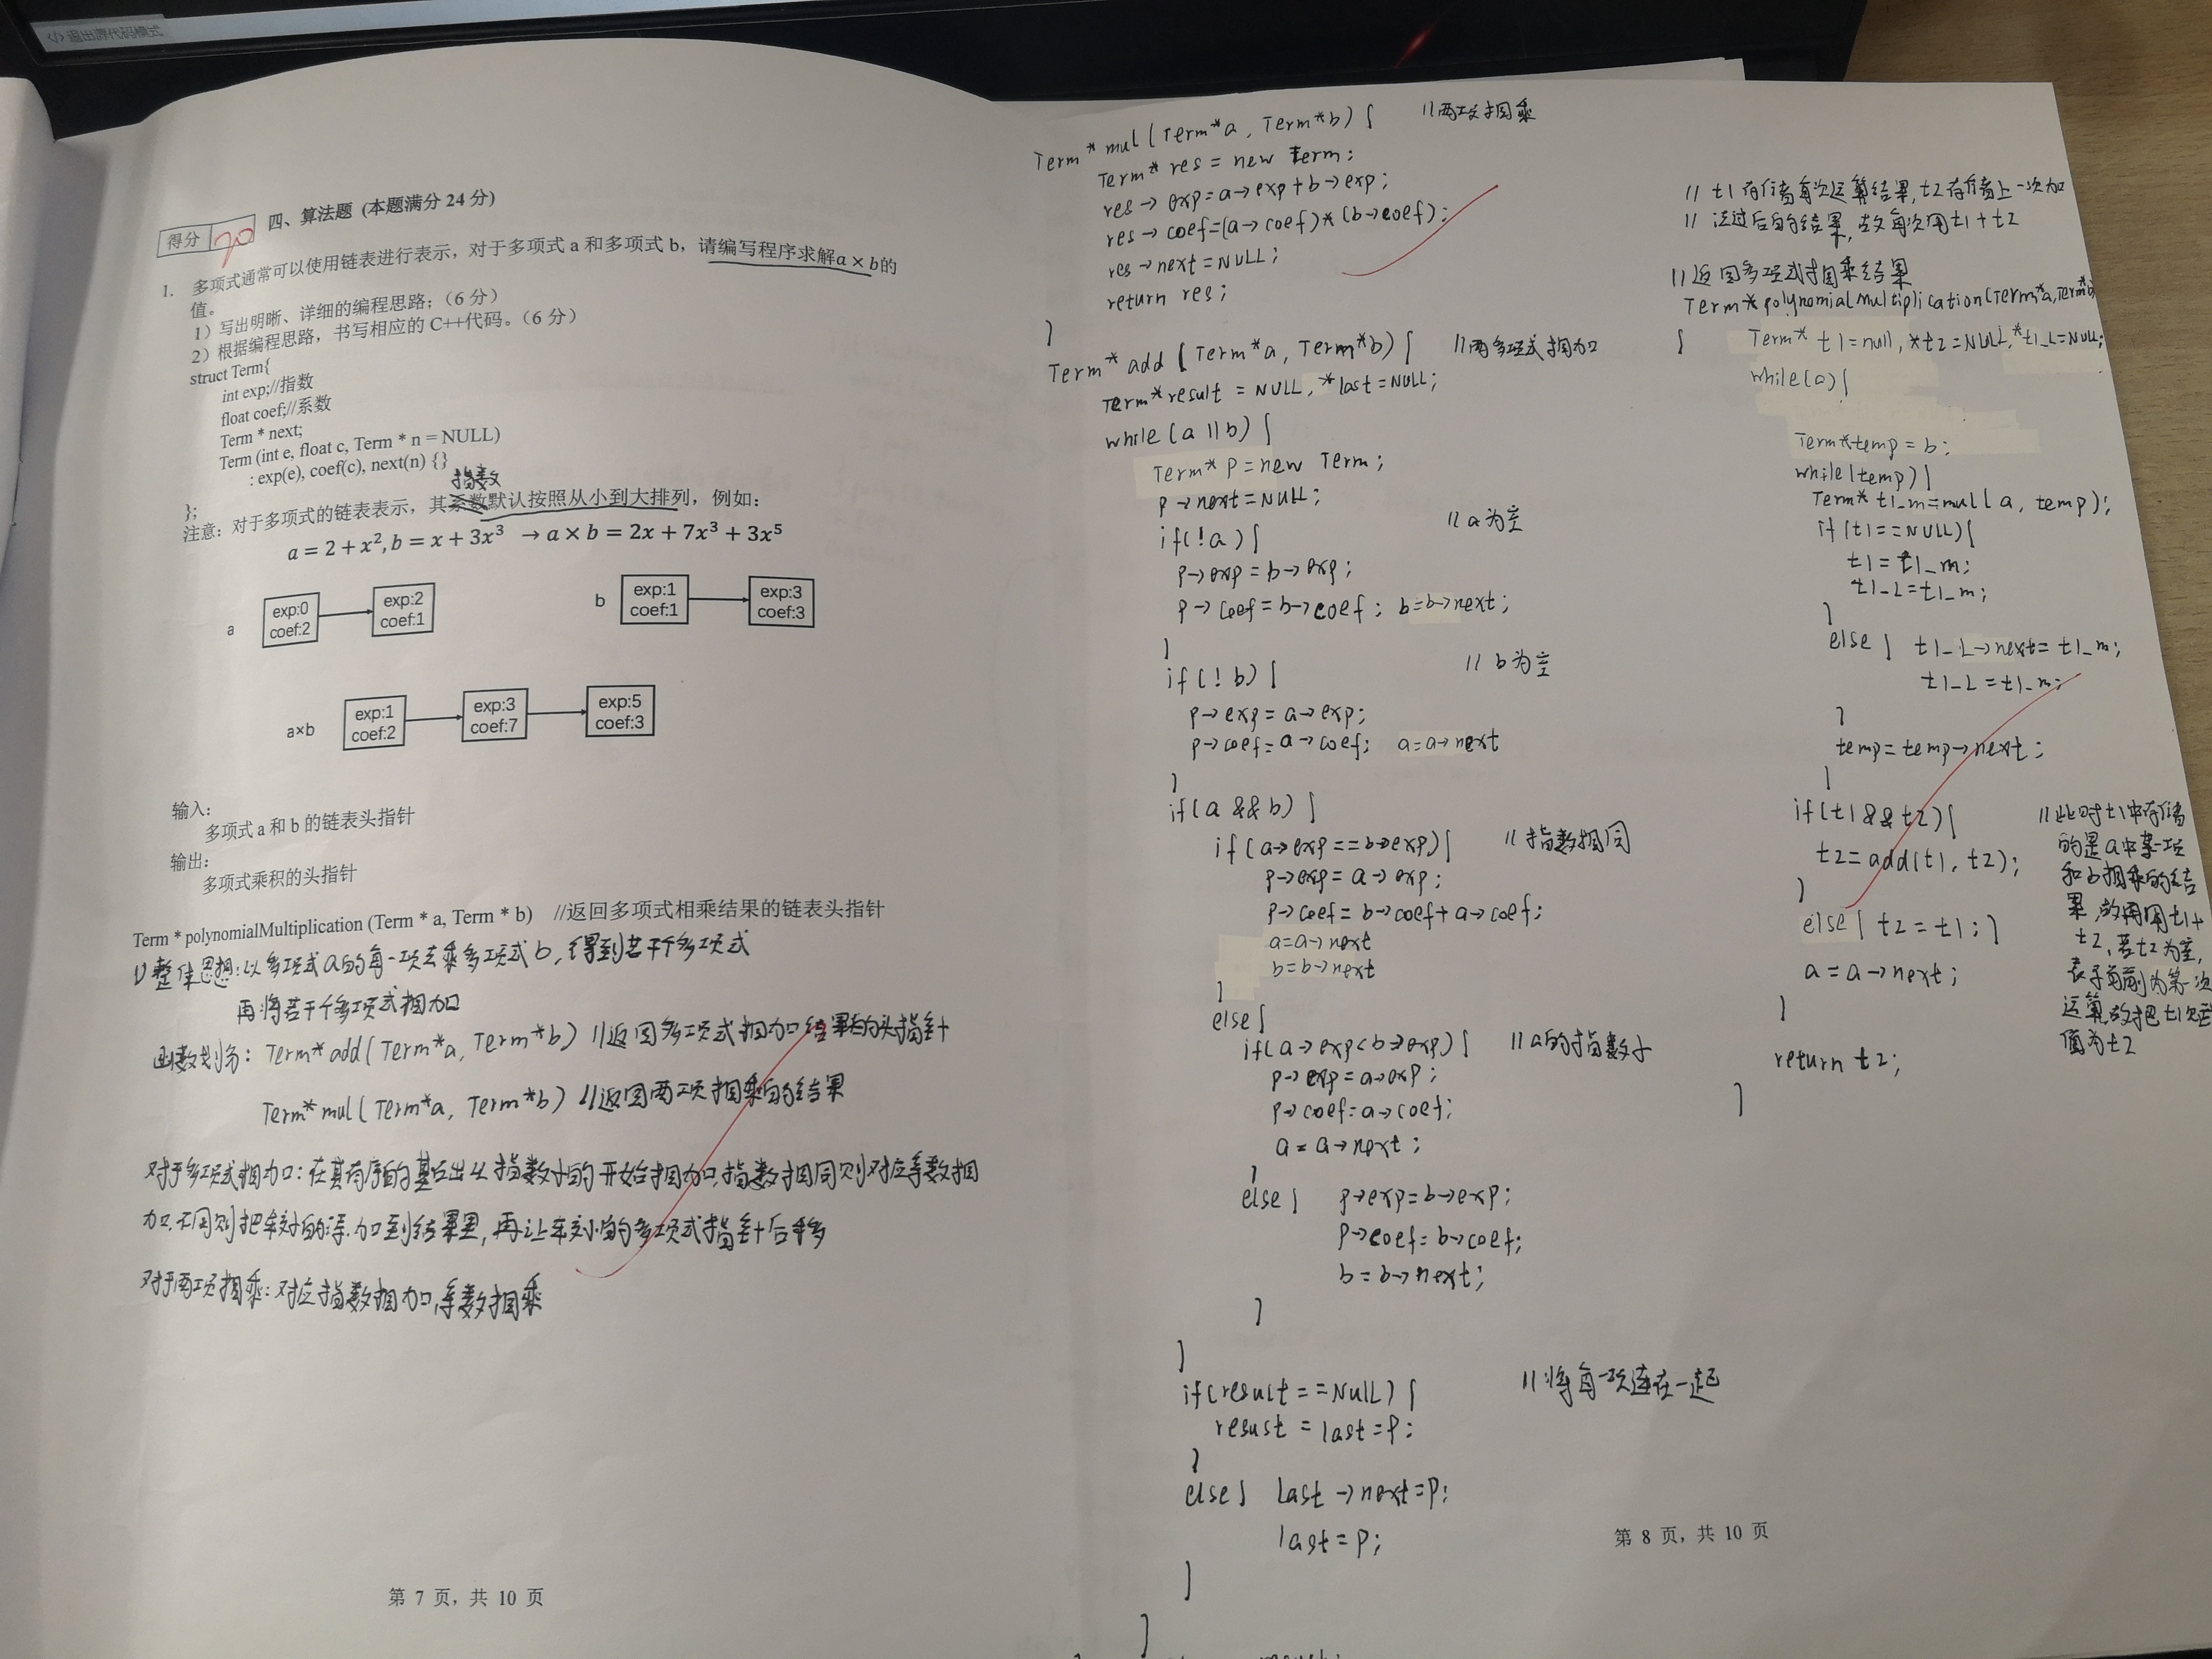 </> 退出源代码模式
得分 20
四、算法题 (本题满分 24 分)
1. 多项式通常可以使用链表进行表示，对于多项式 a 和多项式 b，请编写程序求解a × b的
值。
1）写出明晰、详细的编程思路；（6 分）
2）根据编程思路，书写相应的 C++代码。（6 分）
struct Term{
int exp;//指数
float coef;//系数
Term * next;
Term (int e, float c, Term * n = NULL)
: exp(e), coef(c), next(n) {}
};
指数
注意：对于多项式的链表表示，其系数默认按照从小到大排列，例如：
a = 2 + x², b = x + 3x³ → a × b = 2x + 7x³ + 3x⁵
a
exp:0
coef:2
exp:2
coef:1
b
exp:1
coef:1
exp:3
coef:3
a×b
exp:1
coef:2
exp:3
coef:7
exp:5
coef:3
输入：
多项式 a 和 b 的链表头指针
输出：
多项式乘积的头指针
Term * polynomialMultiplication (Term * a, Term * b) //返回多项式相乘结果的链表头指针
1) 整体思想：以多项式a的每一项去乘多项式b，得到若干个多项式
再将若干个多项式相加
函数划分：Term* add(Term*a, Term*b) //返回多项式相加结果的头指针
Term* mul(Term*a, Term*b) //返回两项相乘的结果
对于多项式相加：在其有序的基础上从指数小的开始相加，指数相同则对应系数相
加，不同则把较小的添加到结果里，再让较小的多项式指针后移
对于两项相乘：对应指数相加，系数相乘
第 7 页，共 10 页
Term* mul(Term*a, Term*b){ //两项相乘
Term* res = new Term;
res→exp=a→exp+b→exp;
res→coef=(a→coef)*(b→coef);
res→next=NULL;
return res;
}
Term* add(Term*a, Term*b){ //两多项式相加
Term*result = NULL, *last=NULL;
while(a||b){
Term* p=new Term;
p→next=NULL;
if(!a){ //a为空
p→exp=b→exp;
p→coef=b→coef; b=b→next;
}
if(!b){ //b为空
p→exp=a→exp;
p→coef=a→coef; a=a→next
}
if(a&&b){
if(a→exp==b→exp){ //指数相同
p→exp=a→exp;
p→coef=b→coef+a→coef;
a=a→next
b=b→next
}
else{
if(a→exp<b→exp){ //a的指数小
p→exp=a→exp;
p→coef=a→coef;
a=a→next;
}
else{ p→exp=b→exp;
p→coef=b→coef;
b=b→next;
}
}
if(result==NULL){ //将每一项连在一起
resust=last=p;
}
else{ last→next=p;
last=p;
}
}
// t1存储每次运算结果，t2存储上一次加
// 法过后的结果，故每次用t1+t2
//返回多项式相乘结果
Term*polynomialMultiplication(Term*a,Term*b)
{ Term* t1=null, *t2=NULL,*t1_L=NULL;
while(a){
Term*temp=b;
while(temp){
Term* t1_m=mull(a, temp);
if(t1==NULL){
t1=t1_m;
t1_L=t1_m;
}
else{ t1_L→next=t1_m;
t1_L=t1_m;
}
temp=temp→next;
}
if(t1&&t2){ //此时t1中存储
t2=add(t1, t2); 的是a中某一项
} 和b相乘的结
else{ t2=t1;} 果，故再用t1+
a=a→next; t2，若t2为空，
} 表示当前为第一次
return t2; 运算，故把t1赋
} 值为t2
第 8 页，共 10 页